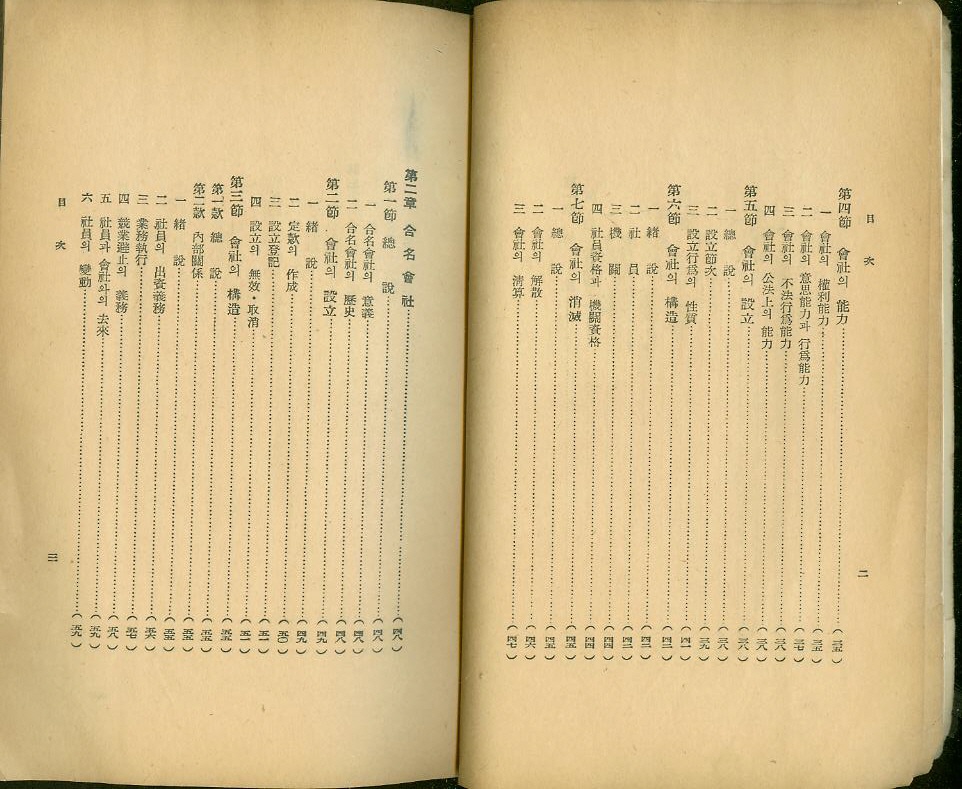 目次
第四節 會社의 能力……(三五)
一 會社의 權利能力……(三五)
二 會社의 意思能力과 行爲能力……(三七)
三 會社의 不法行爲能力……(三八)
四 會社의 公法上의 能力……(三八)
第五節 會社의 設立……(三八)
一 總說……(三八)
二 設立節次……(三九)
三 設立行爲의 性質……(四一)
第六節 會社의 構造……(四二)
一 緖說……(四二)
二 社員……(四二)
三 機關……(四四)
四 社員資格과 機關資格……(四四)
第七節 會社의 消滅……(四五)
一 總說……(四五)
二 會社의 解散……(四六)
三 會社의 淸算……(四七)
二
第二章 合名會社……(四八)
第一節 總說……(四八)
一 合名會社의 意義……(四八)
二 合名會社의 歷史……(四八)
第二節 會社의 設立……(四九)
一 緖說……(四九)
二 定款의 作成……(五〇)
三 設立登記……(五一)
四 設立의 無效・取消……(五一)
第三節 會社의 構造……(五五)
第一款 總說……(五五)
第二款 內部關係……(五五)
一 緖說……(五五)
二 社員의 出資義務……(五六)
三 業務執行……(五七)
四 競業避止의 義務……(五八)
五 社員과 會社와의 去來……(五九)
六 社員의 變動……(五九)
目次
三